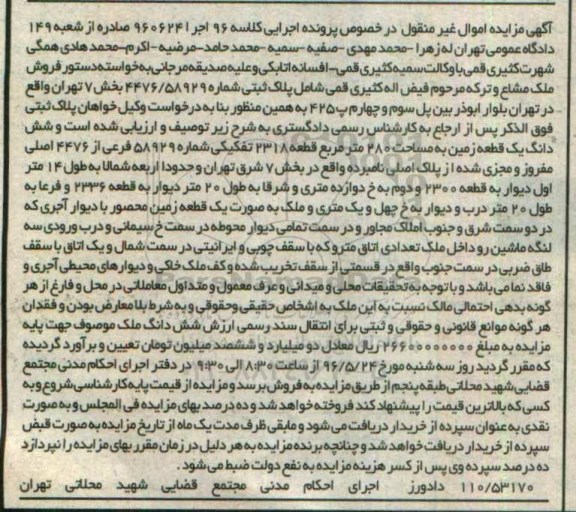 آگهی مزایده اموال غیر منقول در خصوص پرونده اجرایی کلاسه ۹۶ اجرا ۹۶۰۶۲۴ صادره از شعبه ۱۴۹
دادگاه عمومی تهران له زهرا - محمد مهدی - صفیه - سمیه - محمد حامد - مرضیه - اکرم - محمد هادی همگی
شهرت کثیری قمی با وکالت سمیه کثیری قمی - افسانه اتابکی و علیه صدیقه مرجانی به خواسته دستور فروش
ملک مشاع و ترکه مرحوم فیض اله کثیری قمی شامل پلاک ثبتی شماره ۴۴۷۶/۵۸۹۲۹ بخش ۷ تهران واقع
در تهران بلوار ابوذر بین پل سوم و چهارم پ ۴۲۵ به همین منظور بنا به درخواست وکیل خواهان پلاک ثبتی
فوق الذکر پس از ارجاع به کارشناس رسمی دادگستری به شرح زیر توصیف و ارزیابی شده است و شش
دانگ یک قطعه زمین به مساحت ۲۸۰ متر مربع قطعه ۲۳۱۸ تفکیکی شماره ۵۸۹۲۹ فرعی از ۴۴۷۶ اصلی
مفروز و مجزی شده از پلاک اصلی نامبرده واقع در بخش ۷ شرق تهران و حدودا اربعه شمالا به طول ۱۴ متر
اول دیوار به قطعه ۲۳۰۰ و دوم به خ دوازده متری و شرقا به طول ۲۰ متر دیوار به قطعه ۲۳۳۶ و غربا به
طول ۲۰ متر درب و دیوار به خ چهل و یک متری و ملک به صورت یک قطعه زمین محصور با دیوار آجری که
در دو سمت شرق و جنوب املاک مجاور و در سمت تمامی دیوار محوطه در سمت خ سیمانی و درب ورودی سه
لنگه ماشین رو داخل ملک تعدادی اتاق مترو که با سقف چوبی و ایرانیتی در سمت شمال و یک اتاق با سقف
طاق ضربی در سمت جنوب واقع در قسمتی از سقف تخریب شده و کف ملک خاکی و دیوارهای محیطی آجری و
فاقد نما می باشد و با توجه به تحقیقات محلی و میدانی و عرف معمول و متداول معاملاتی در محل و فارغ از هر
گونه بدهی احتمالی مالک نسبت به این ملک به اشخاص حقیقی وحقوقی و به شرط بلا معارض بودن و فقدان
هر گونه موانع قانونی و حقوقی و ثبتی برای انتقال سند رسمی ارزش شش دانگ ملک موصوف جهت پایه
مزایده به مبلغ ۲۶۶۰۰۰۰۰۰۰۰ ریال معادل دو میلیارد و ششصد میلیون تومان تعیین و برآورد گردیده
که مقرر گردید روز سه شنبه مورخ ۹۶/۵/۲۴ از ساعت ۸:۳۰ الی ۹:۳۰ در دفتر اجرای احکام مدنی مجتمع
قضایی شهید محلاتی طبقه پنجم از طریق مزایده به فروش برسد و مزایده از قیمت پایه کارشناسی شروع و به
کسی که بالاترین قیمت را پیشنهاد کند فروخته خواهد شد و ده درصد بهای مزایده فی المجلس و به صورت
نقدی به عنوان سپرده از خریدار دریافت می شود و مابقی ظرف مدت یک ماه از تاریخ مزایده به صورت قبض
سپرده از خریدار دریافت خواهد شد و چنانچه برنده مزایده به هر دلیل در زمان مقرر بهای مزایده را نپردازد
ده درصد سپرده وی پس از کسر هزینه مزایده به نفع دولت ضبط می شود.
۱۱۰/۵۳۱۷۰ دادورز اجرای احکام مدنی مجتمع قضایی شهید محلاتی تهران